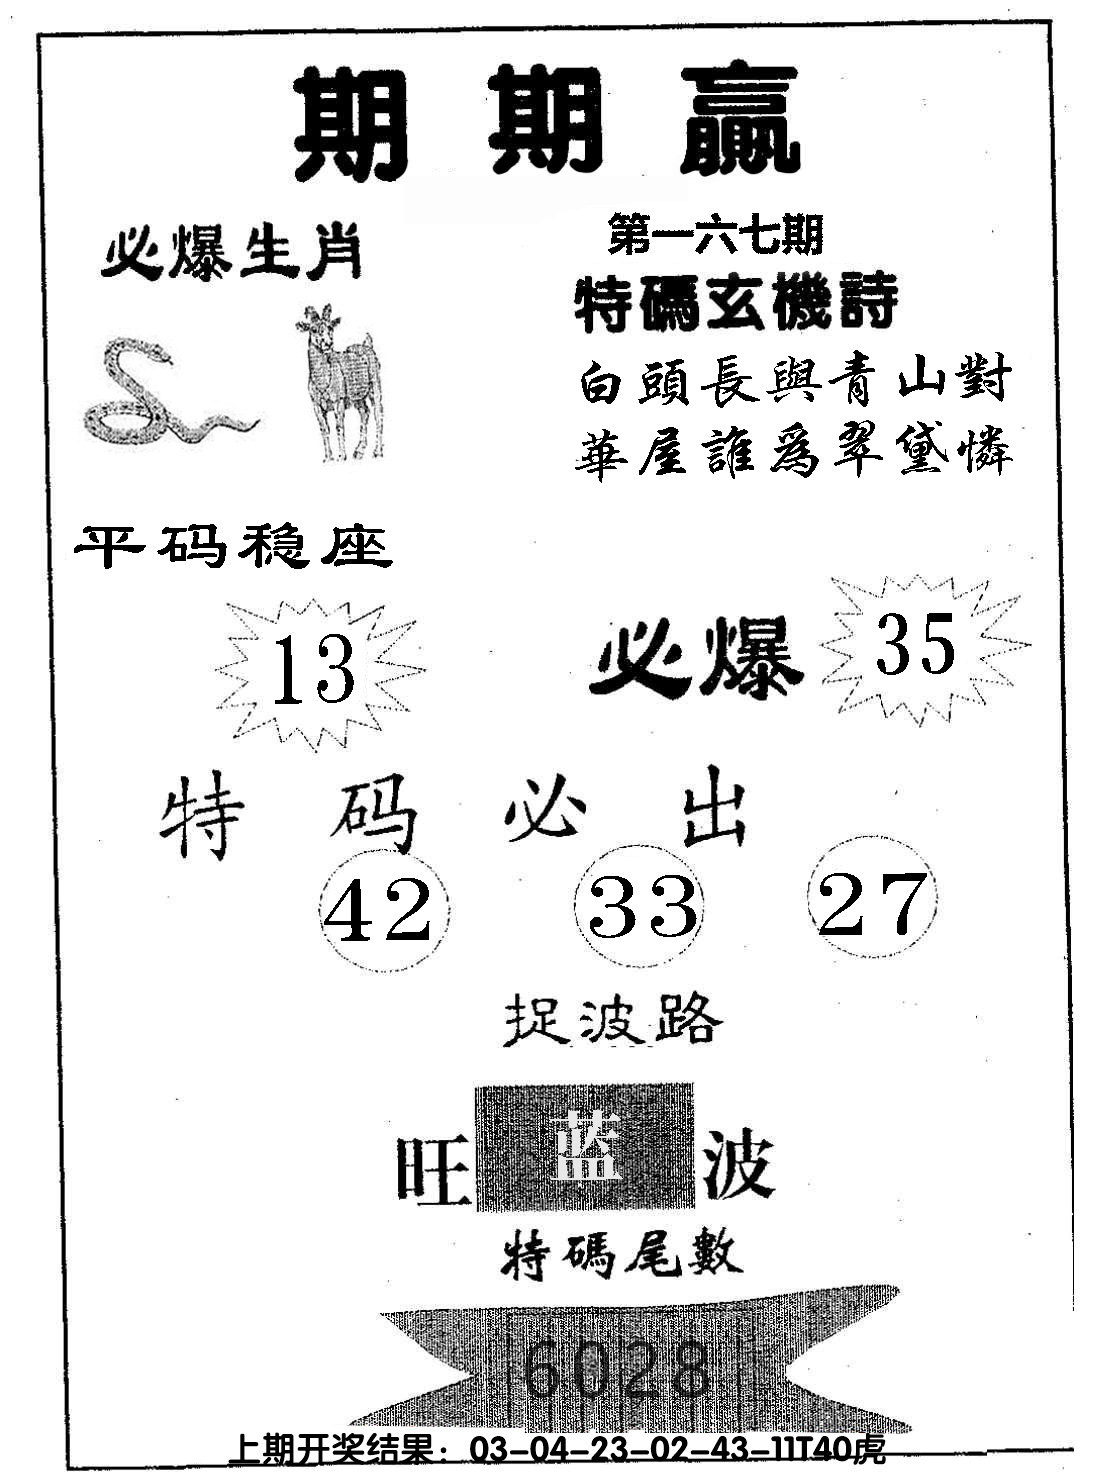 期期贏
必爆生肖
第一六七期
特碼玄機詩
白頭長與青山對
華屋誰爲翠黛憐
平码稳座
13
必爆 35
特码必出
42 33 27
捉波路
旺 蓝 波
特碼尾數
6028
上期开奖结果：03-04-23-02-43-11T40虎